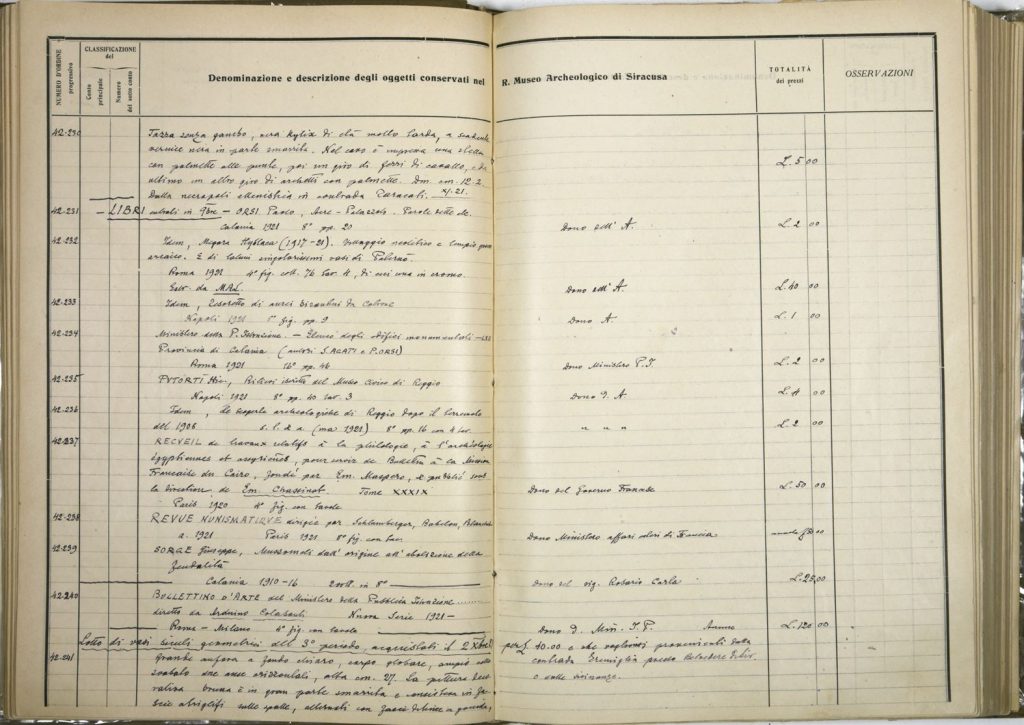 NUMERO D'ORDINE progressivo
CLASSIFICAZIONE del
Conto principale
Numero del sotto conto
Denominazione e descrizione degli oggetti conservati nel R. Museo Archeologico di Siracusa
TOTALITÀ dei prezzi
OSSERVAZIONI
42-230 Tazza senza gambo, vera Kylix di età molto tarda, a scadente
vernice nera in parte smarrita. Nel cavo è impressa una stella
con palmette alle punte, poi un giro di ferri di cavallo, e da
ultimo un altro giro di archetti con palmette. Dm. cm. 12-2. L. 5 00
Dalla necropoli ellenistica in contrada Canacati. XI. 21.
42-231 - LIBRI entrati in 9bre - ORSI Paolo, Acre - Palazzolo. Parole dette
Catania 1921 8° pp. 20 Dono dell' A. L. 2 00
42-232 Idem, Megara Hyblaea (1917-21). Villaggio neolitico e tempio greco
arcaico. E di taluni singolarissimi vasi di Paternò.
Roma 1921 4° fig. coll. 76 tav. 4, di cui una in cromo.
Estr. da MAL. Dono dell' A. L. 40 00
42-233 Idem, Tesoretto di aurei bizantini da
Napoli 1921 fig. pp. 9 Dono A. L. 1 00
42-234 Ministero della P. Istruzione. - Elenco degli edifici monumentali -
Provincia di Catania (autori S. AGATI e P. ORSI)
Roma 1921 16° pp. 46 Dono Ministero P. I. L. 2 00
42-235 PUTORTÌ Nic., Rilievi del Museo Civico di Reggio
Napoli 1921 8° pp. 40 tav. 3 Dono d. A L. 4 00
42-236 Idem, Le scoperte archeologiche di Reggio dopo il terremoto
del 1908 s. l. e a (ma 1921) 8° pp. 16 con 4 tav. " " " L. 2 00
42-237 RECUEIL de travaux relatifs à la philologie, à l'archéologie
égyptiennes et assyriennes, pour servir de Bulletin à la Mission
Française du Caire, fondé par Em. Maspero, et publié sous
la direction de Em. Chassinat. Tome XXXIX Dono del Governo Francese L. 50 00
Paris 1920 4° fig. con tavole
42-238 REVUE NUMISMATIQUE dirigée par Schlumberger, Babelon, Blanchet
a. 1921 Paris 1921 8° fig. con tav. Dono Ministero affari esteri di Francia
42-239 SORGE Giuseppe, Mussomeli dall' origine all' abolizione della
feudalità
Catania 1910-16 2 voll. in 8° Dono del sig. Rosario Carta L. 25,00
42-240 BULLETTINO D'ARTE del Ministero della Pubblica Istruzione
diretto da Arduino Colasanti Nuova Serie 1921-
Roma - Milano 4° fig. con tavole Dono d. Min. I. P. Annuo L. 120 00
Lotto di vasi siculi geometrici del 3° periodo, acquistati il 2 Xbre per L. 40.00 e che voglionsi provenienti dalla
contrada presso Belvedere
o dalle vicinanze.
42-241 Grande anfora a fondo chiaro, corpo globare, ampio collo
svasato due anse orizzontali, alta cm. 27. La pittura deco-
rativa bruna è in gran parte smarrita e consisteva in fa-
scie sulle spalle, alternati con fascie